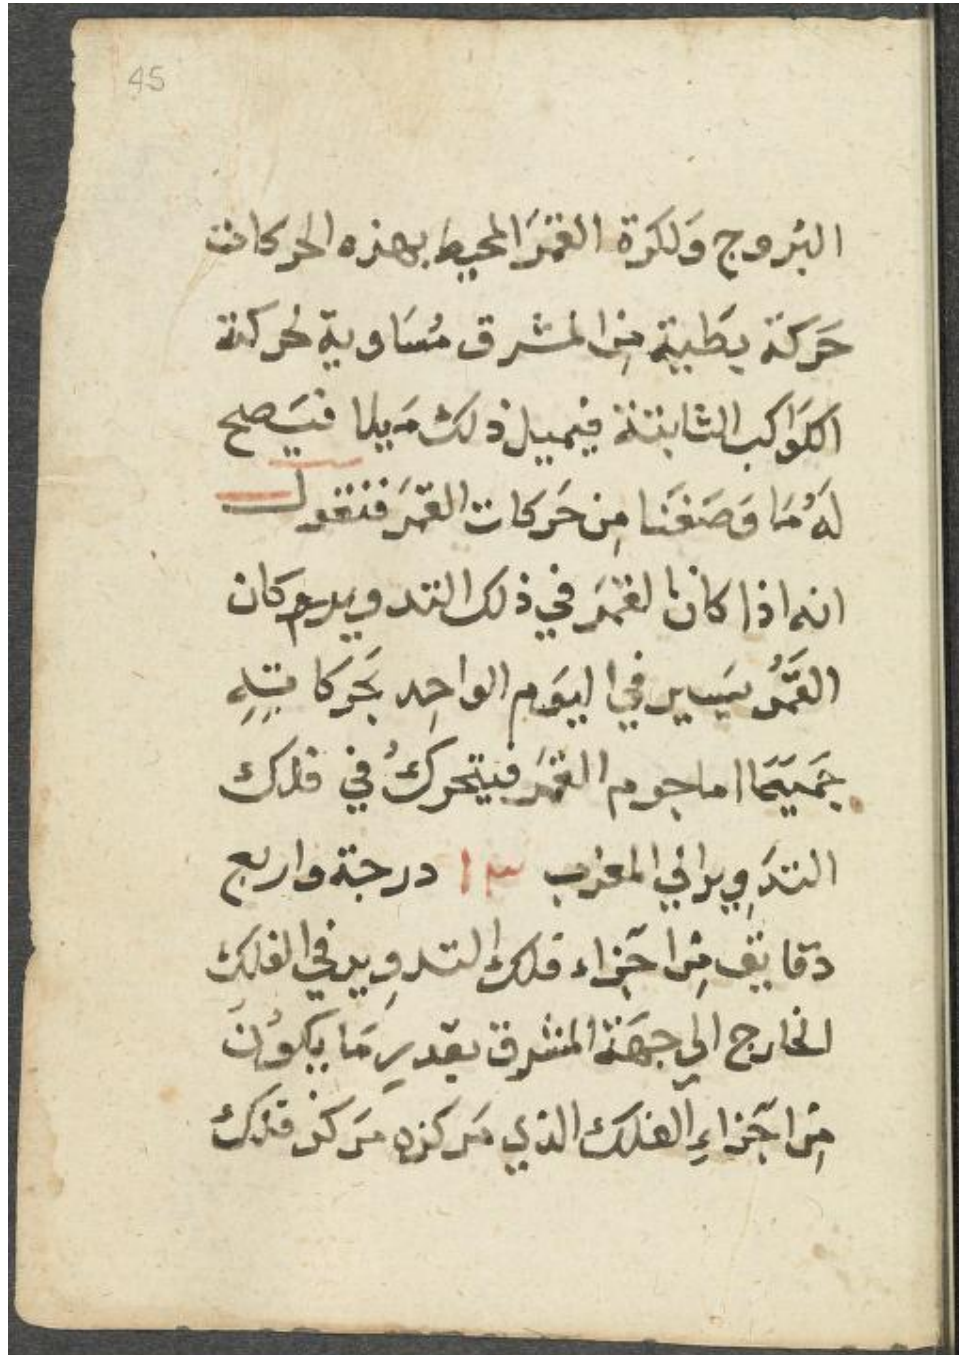 45
البُروج وَلكرة القمَرَ المحيط بهذه الحركات
حَركة بطَيية مِن المشرق مُسَاوية لحركة
الكَوَاكب الثابتة فيميل ذلك مَيلا فيَصلح
لَهُ مَا وَصَفنَا مِن حَركات القمَرَ فنقول
انه اذا كان القمَرَ في ذلك التدوير كان
القَمَرُ يسَير في اليَوم الواحِد بحَركاتِهِ
جَميعَا اما جرم القمَرَ فيتحركُ في فلك
التدَوِير الي المغرب ١٣ درجة واربع
دقايق مِن اجزاء فلك التدوِير في الفلك
الخارج الي جهَة المشرق بقدرِ مَا يكوُنَ
مِن اجزاءِ الفلك الذي مَركزه مَركز فلك